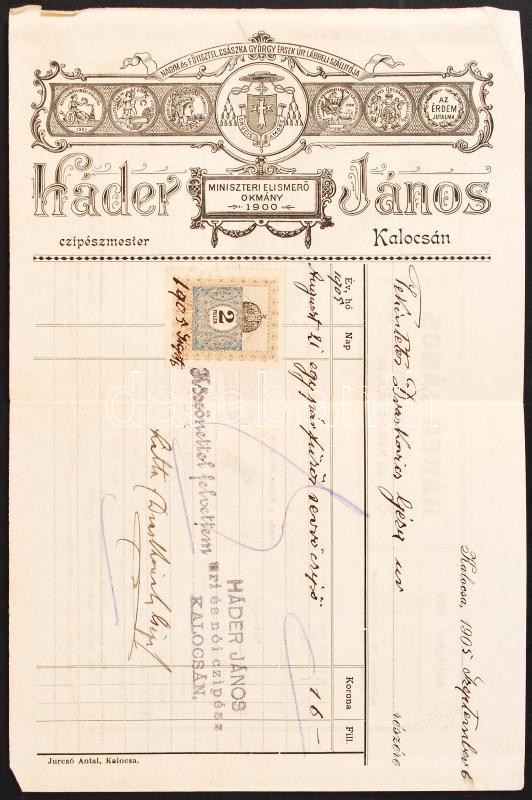 NAGYM. és FŐTISZTEL. CSÁSZKA GYÖRGY ÉRSEK ÚR LÁBBELI SZÁLLÍTÓJA
AZ ÉRDEM JUTALMA
Háder János
MINISZTERI ELISMERŐ
OKMÁNY
1900
czipészmester
Kalocsán
Kalocsa, 1905 Szeptember 6
Tekintetes Draskovics Géza úr részére
Év, hó Nap Korona Fill.
1905
August 21 egy pár fűzős czipő 16 –
2
FILLÉR
1905
Köszönettel felvettem
HÁDER JÁNOS
úri és női czipész
KALOCSÁN.
Jurcsó Antal, Kalocsa.
Darabanth